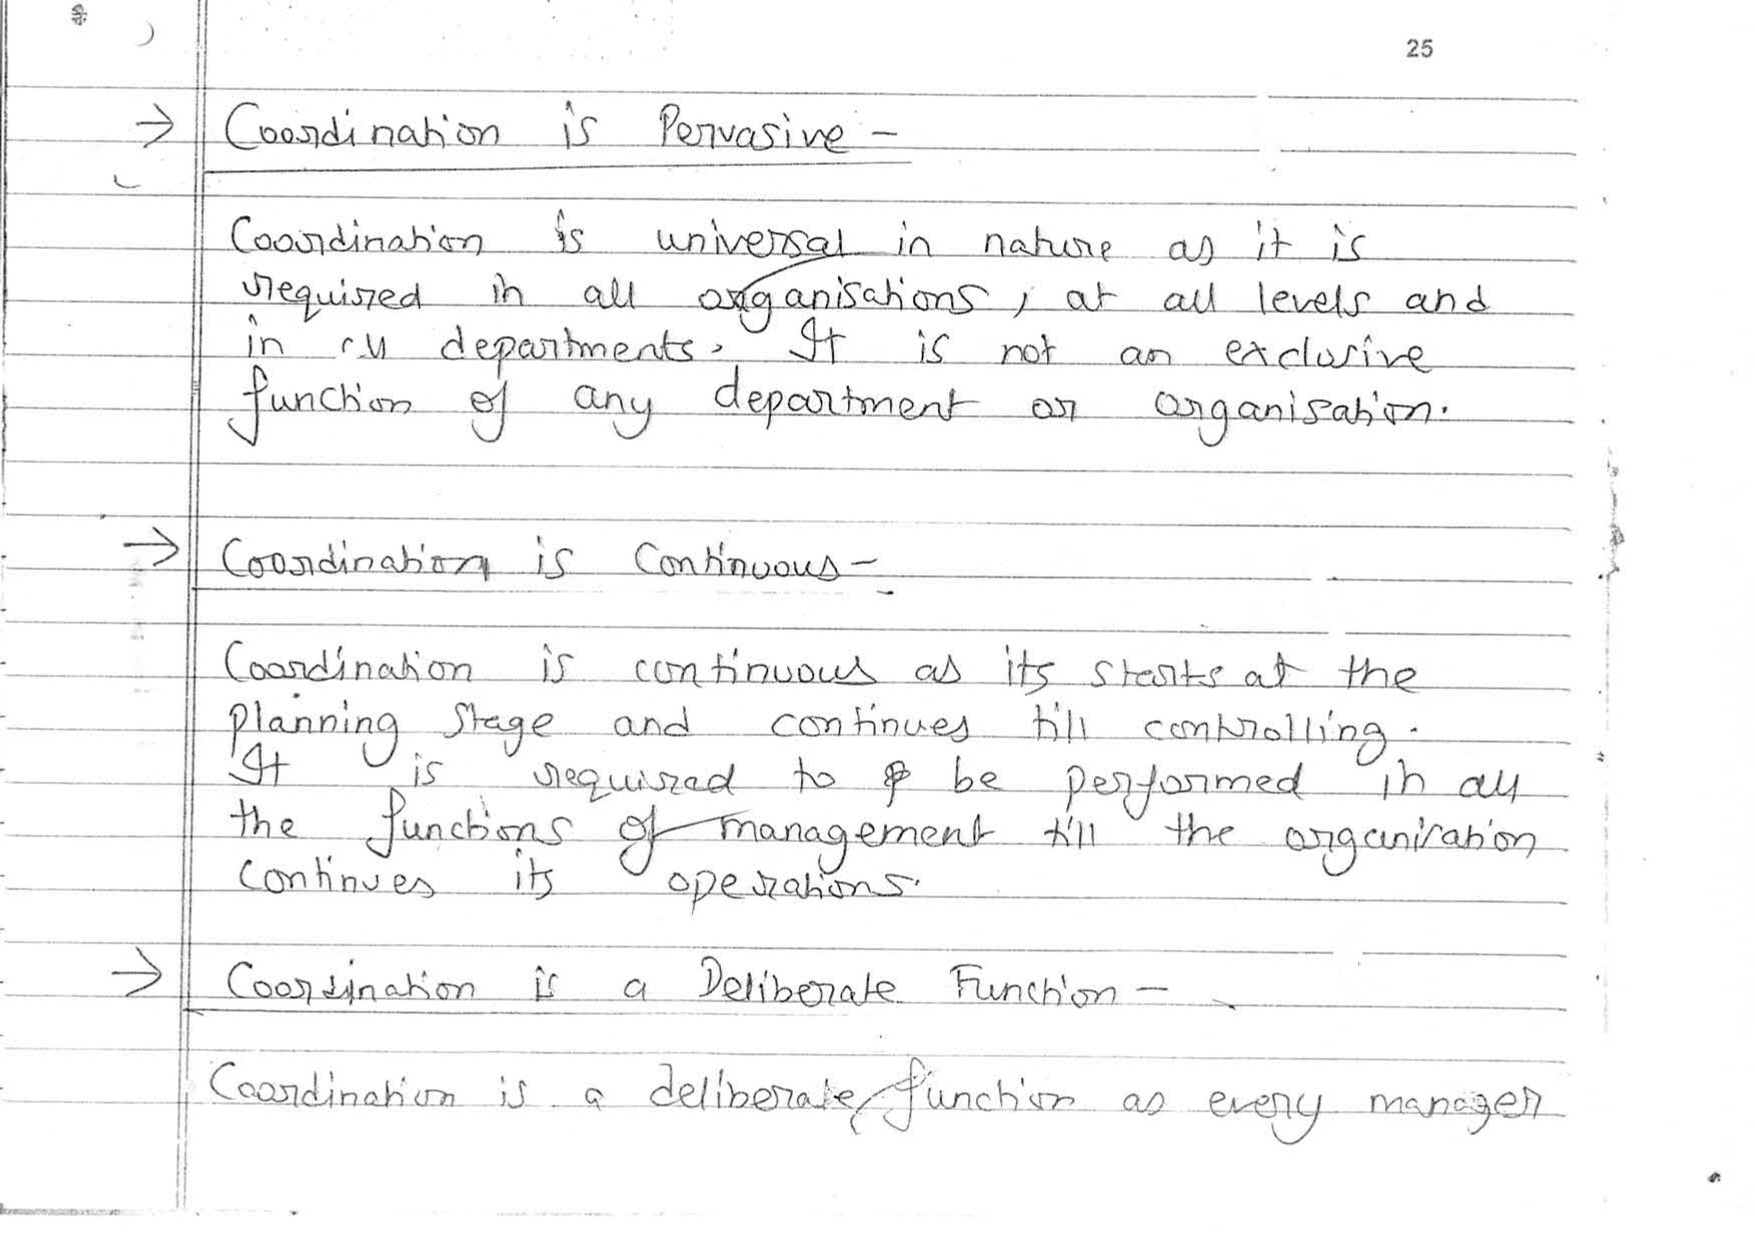 25
→ Coordination is Pervasive -
Coordination is universal in nature as it is
required in all organisations, at all levels and
in all departments. It is not an exclusive
function of any department or organisation.
→ Coordination is Continuous -
Coordination is continuous as its starts at the
planning stage and continues till controlling.
It is required to be performed in all
the functions of management till the organisation
continues its operations.
→ Coordination is a Deliberate Function -
Coordination is a deliberate function as every manager